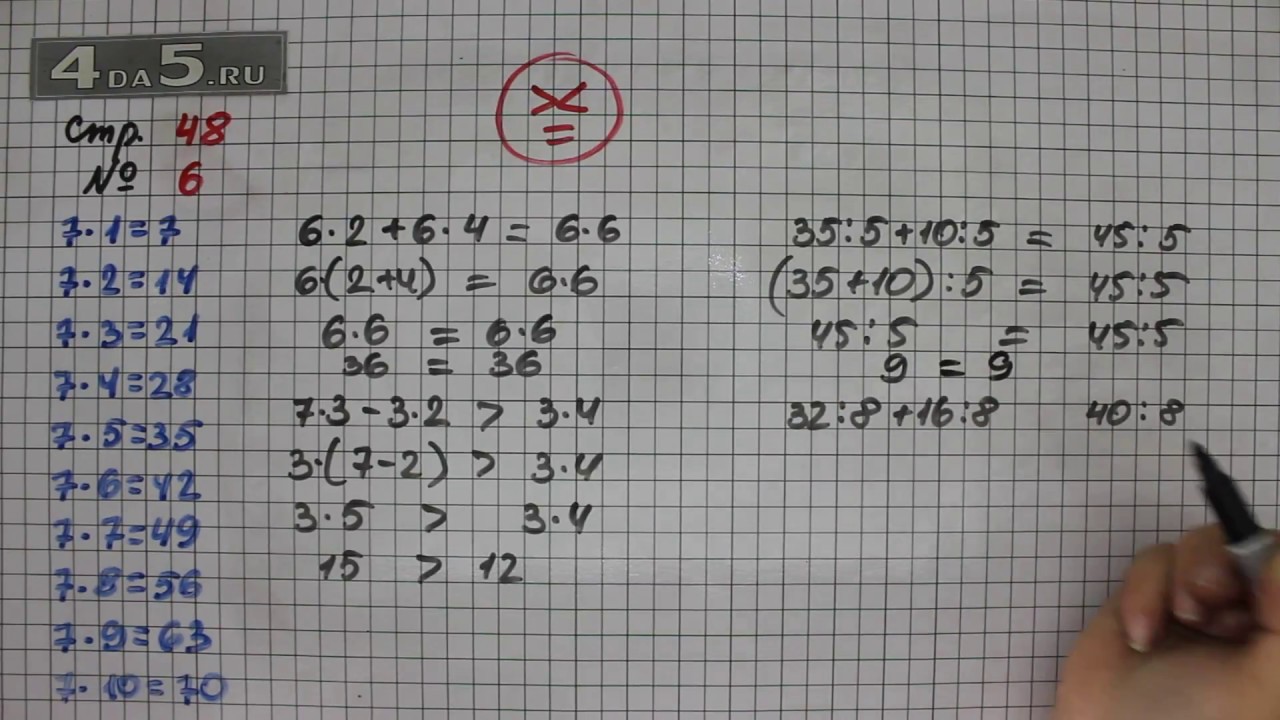 4DA5.RU
Стр. 48
№ 6
7·1=7
7·2=14
7·3=21
7·4=28
7·5=35
7·6=42
7·7=49
7·8=56
7·9=63
7·10=70
><
=
6·2+6·4 = 6·6
6·(2+4) = 6·6
6·6 = 6·6
36 = 36
7·3-3·2 > 3·4
3·(7-2) > 3·4
3·5 > 3·4
15 > 12
35:5+10:5 = 45:5
(35+10):5 = 45:5
45:5 = 45:5
9 = 9
32:8+16:8 40:8